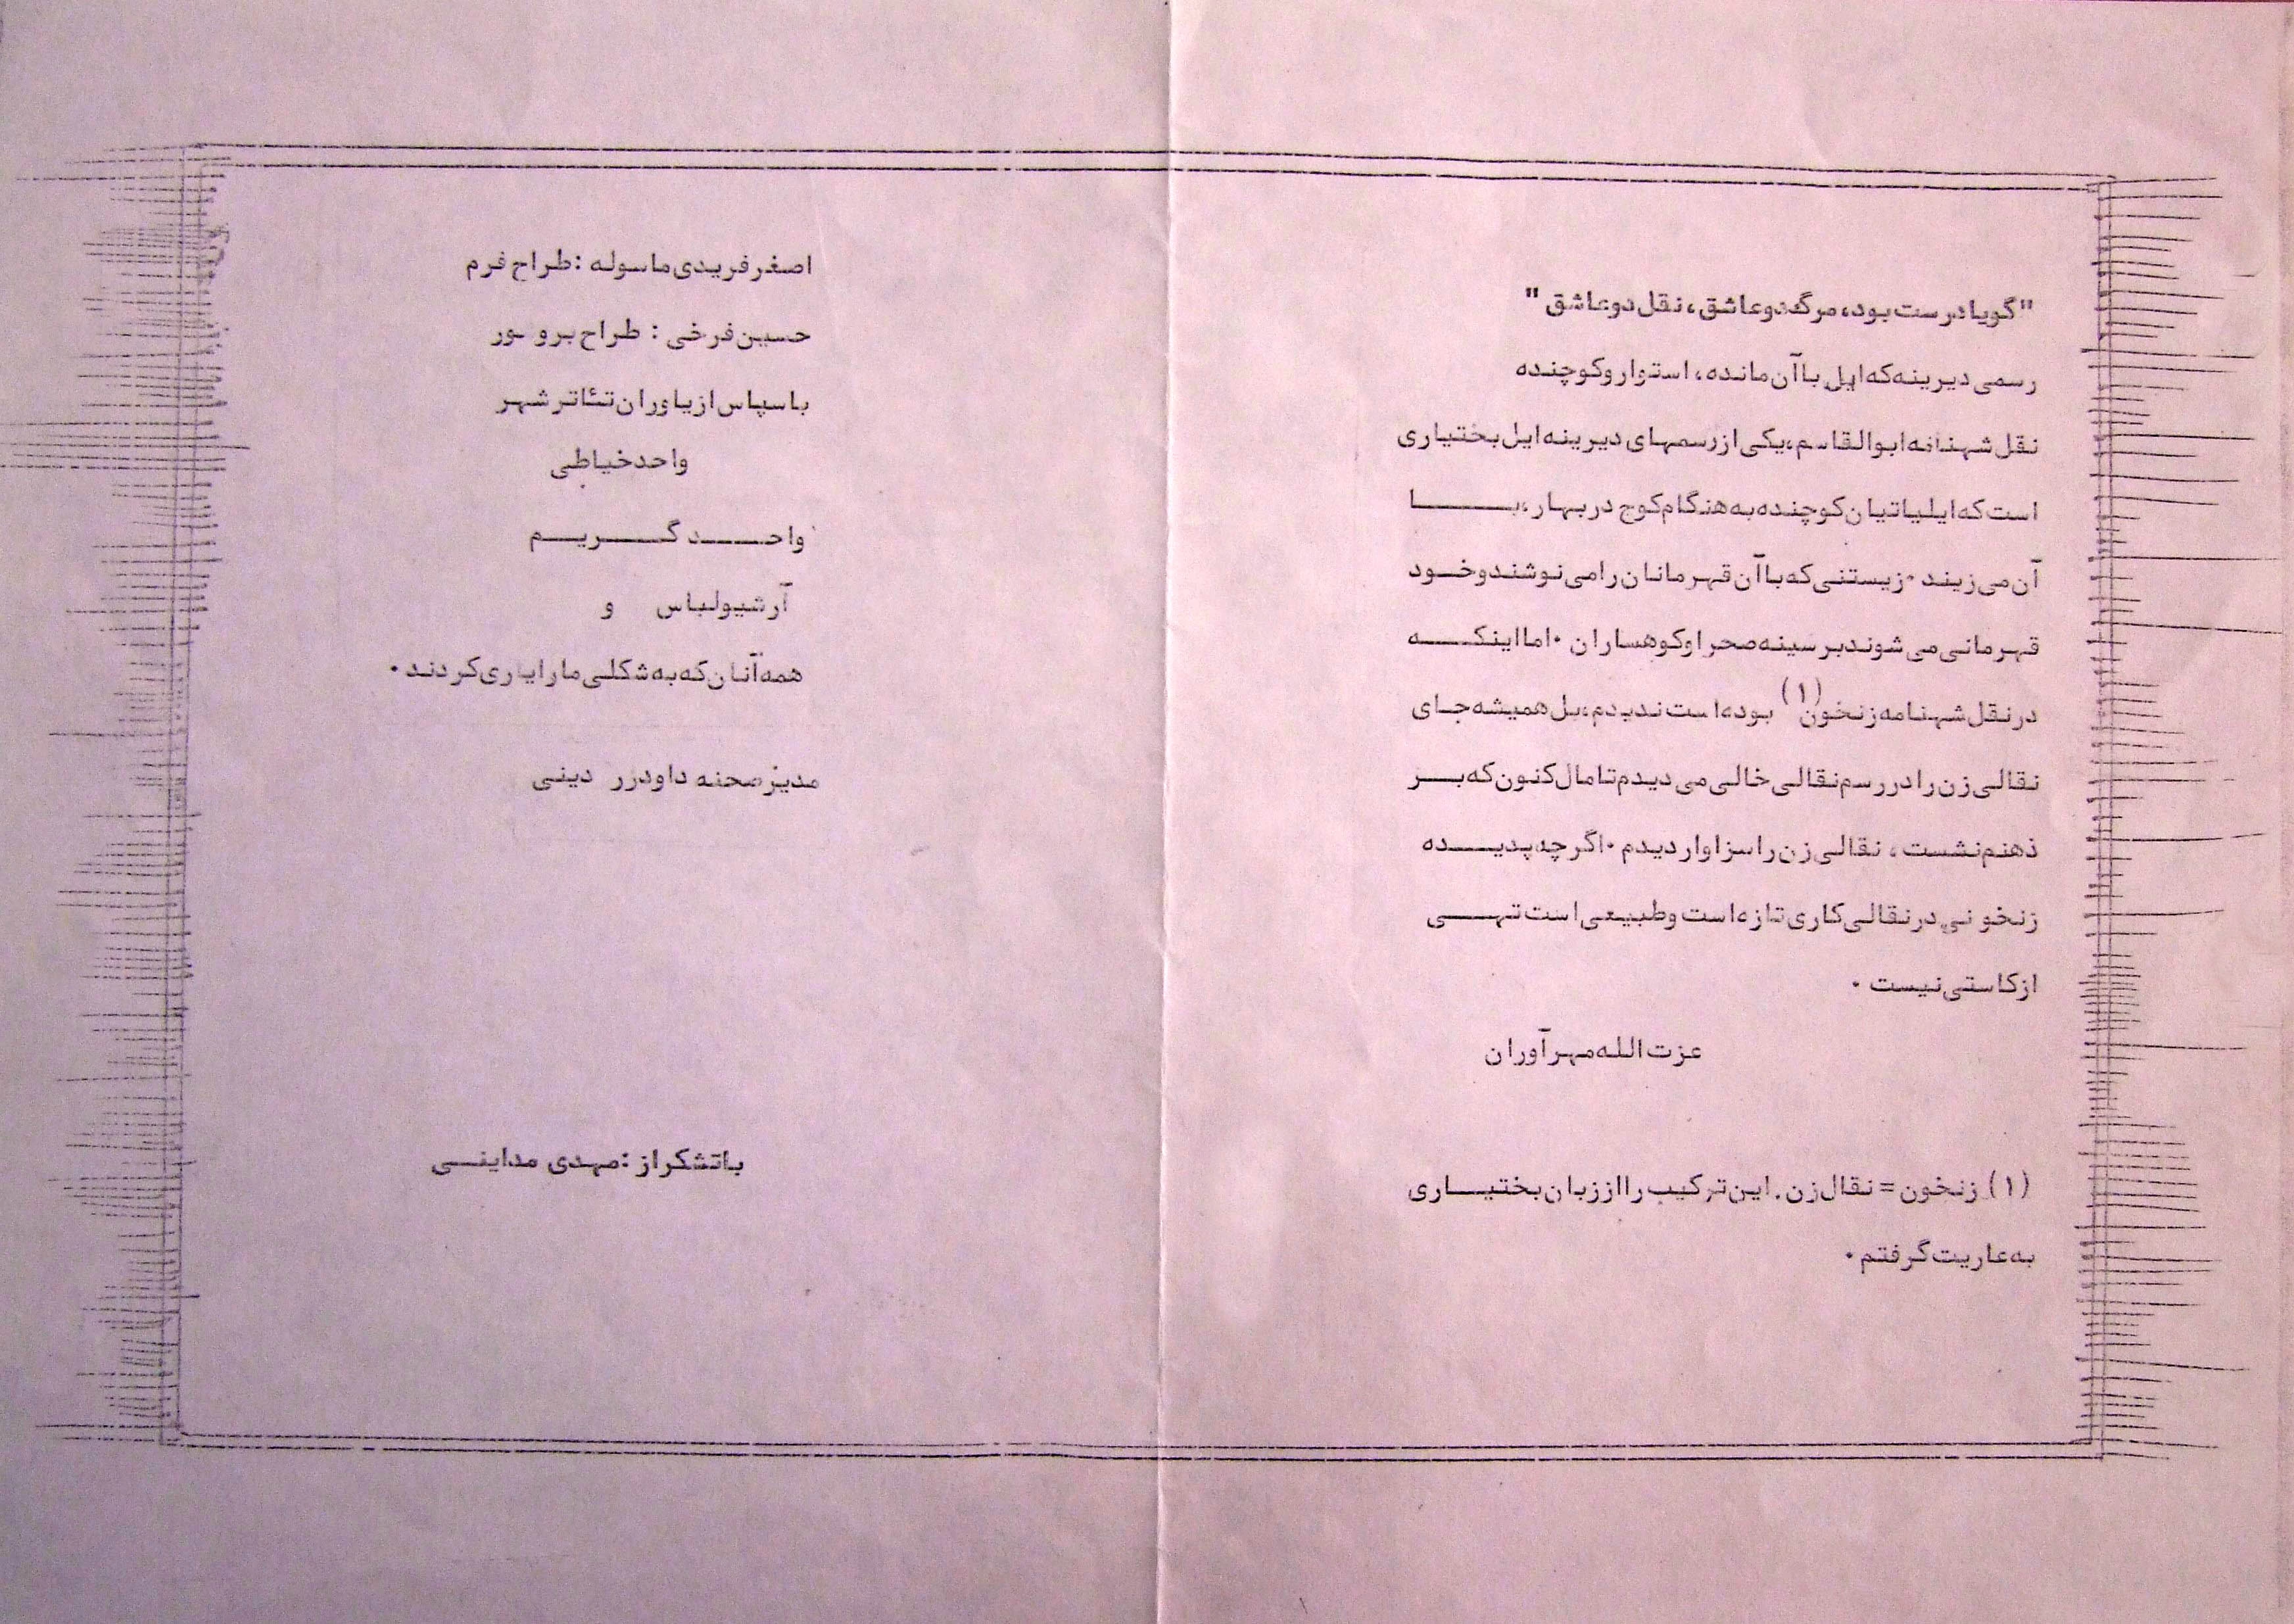 "گویا درست بود، مرگ دو عاشق، نقل دو عاشق"
رسمی دیرینه که ایل با آن مانده، استوار و کوچنده
نقل شهنامه ابوالقاسم، یکی از رسمهای دیرینه ایل بختیاری
است که ایلیاتیان کوچنده به هنگام کوچ در بهار، بــــا
آن می زیند . زیستنی که با آن قهرمانان را می نوشند و خــود
قهرمانی می شوند بر سینه صحرا و کوهساران . اما اینکــــه
در نقل شهنامه زنخون (۱) بوده است ندیدم، بل همیشه جــای
نقالی زن را در رسم نقالی خالی می دیدم تا مال کنون که بــر
ذهنم نشست ، نقالی زن را سزاوار دیدم . اگر چه پدیــــده
زنخونی در نقالی کاری تازه است و طبیعی است تهــــی
از کاستی نیست .
عزت الله مهرآوران
(۱) زنخون = نقال زن . این ترکیب را از زبان بختیـــاری
به عاریت گرفتم .
اصغر فریدی ماسوله : طراح فرم
حسین فرخی : طراح
با سپاس از یاوران تئاتر شهر
واحد خیاطی
واحــــد گــــریــــم
آرشیو لباس و
همه آنان که به شکلی ما را یاری کردند .
مدیر صحنه داود دینی
با تشکر از : مهدی مداینــی